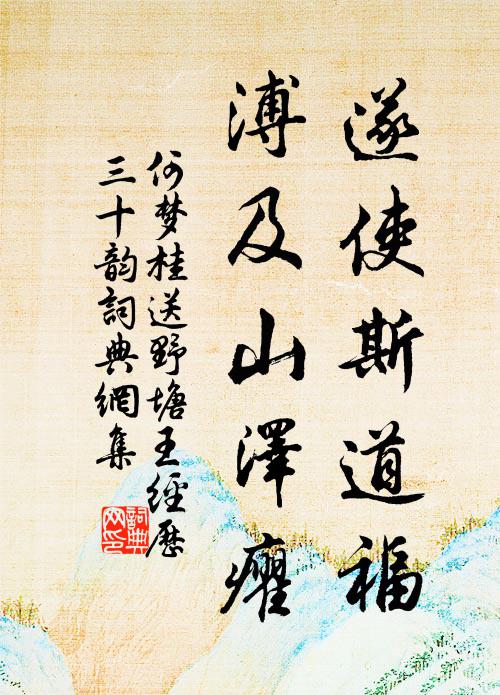 遂使斯道福
溥及山澤癯
何梦桂送野塘王經歷
三十韵詞典網集
詞典网